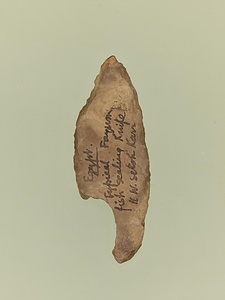 Egypt.
Typical Fayum
fish scaling Knife
H. W. Seton Karr